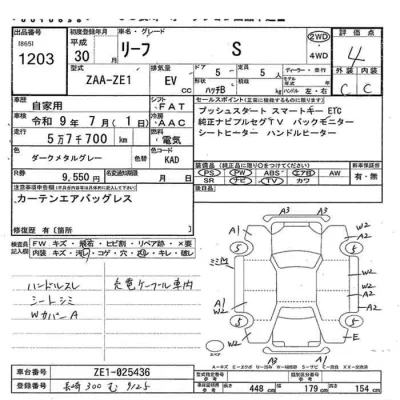 出品番号 初度登録年月 車名・グレード 評価点
18651 平成 2WD
1203 30年 月 リーフ S 4WD 4
型式 排気量 ドア 定員 ディーラー・並行 外装 内装
ZAA-ZE1 EV cc 5 5人 C C
形状 ハッチB
車歴 自家用 シフト FAT セールスポイント
車検 令和 9年 7月(1日) 冷房 AAC プッシュスタート スマートキー ETC
走行 5万7千700 km 燃料 電気 純正ナビフルセグTV バックモニター
シートヒーター ハンドルヒーター
色 ダークメタルグレー 色コード KAD
装備品 新車保証書
R券 9,550円 名変期限 PS PW ABS エアB AW 有・無
SR ナビ TV カワ
注意事項申告欄
.カーテンエアバッグレス
修復歴 有(箇所
検査員記入欄 FW キズ・飛石・ヒビ割・リペア跡・×要
内装 キズ・汚レ・コゲ・穴・凹・キレ・破レ
ハンドルスレ 充電ケーブル車内
シートシミ
WカバーA
A3 A3
W2
5 5
A2
ミニM
A1 W2
W2 A2
A1
5 5
W2
E
A3
スペア
車台番号 ZE1-025436
登録番号 長崎 300 む 9125
型式指定番号 類別区分番号
長さ 448 cm 幅 179 cm 高さ 154 cm